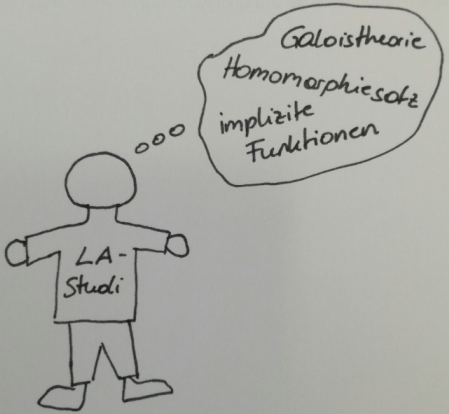 Galoistheorie
Homomorphiesatz
implizite
Funktionen
LA-
Studi